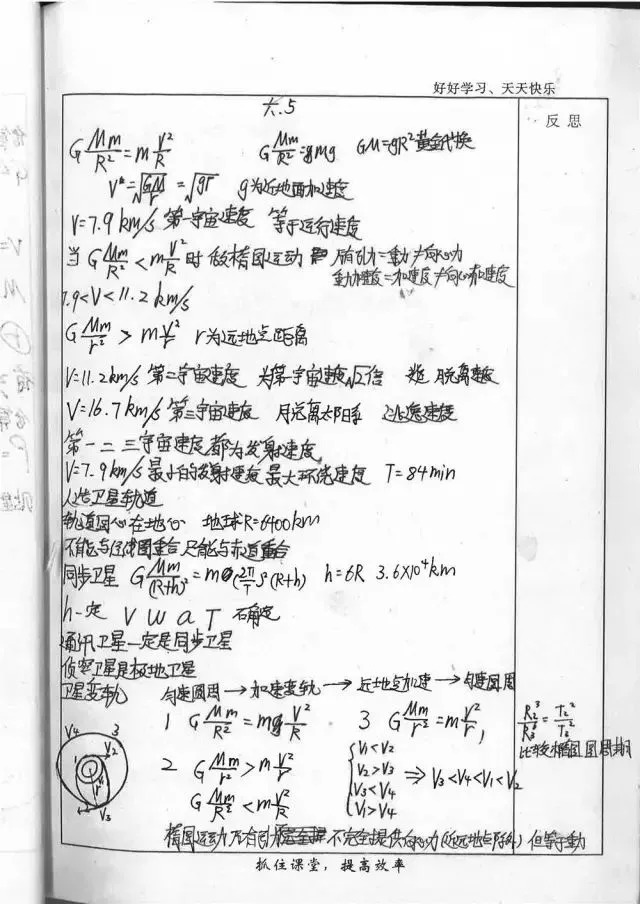 好好学习、天天快乐
反思
6.5
G Mm/R² = m V²/R    G Mm/R² = mg    GM = gR² 黄金代换
V = √(GM/r) = √gr    g为近地面加速度
V=7.9km/s 第一宇宙速度 等于运行速度
当 G Mm/R² < m V²/R 时 做椭圆运动 万有引力=重力≠向心力
重力加速度=加速度≠向心加速度
7.9<V<11.2km/s
G Mm/r² > m V²/r  r为远地点距离
V=11.2km/s 第二宇宙速度 为第一宇宙速度√2倍 脱离速度
V=16.7km/s 第三宇宙速度 脱离太阳系 逃逸速度
第一二三宇宙速度都为发射速度
V=7.9km/s 最小的发射速度 最大环绕速度 T=84min
人造卫星轨道
轨道圆心在地心 地球R=6400km
不能与经线圈重合 只能与赤道重合
同步卫星 G Mm/(R+h)² = m(2π/T)²(R+h)  h=6R  3.6×10⁴km
h一定 V W a T 确定
通讯卫星一定是同步卫星
侦察卫星是极地卫星
卫星变轨 匀速圆周→加速变轨→近地点加速→匀速圆周
1 G Mm/R² = m V²/R    3 G Mm/r² = m V²/r
R₂³/R₃³ = T₂²/T₃²
比较椭圆圆周期
2 G Mm/r² > m V²/r
G Mm/R² < m V²/R
V₁<V₂
V₂>V₃
V₃<V₄
V₁>V₄
⇒ V₃<V₄<V₁<V₂
V₄ 3
V₂
1
r
V₃
椭圆运动 万有引力 不完全提供向心力(近远地点除外) 但等于重力
抓住课堂，提高效率